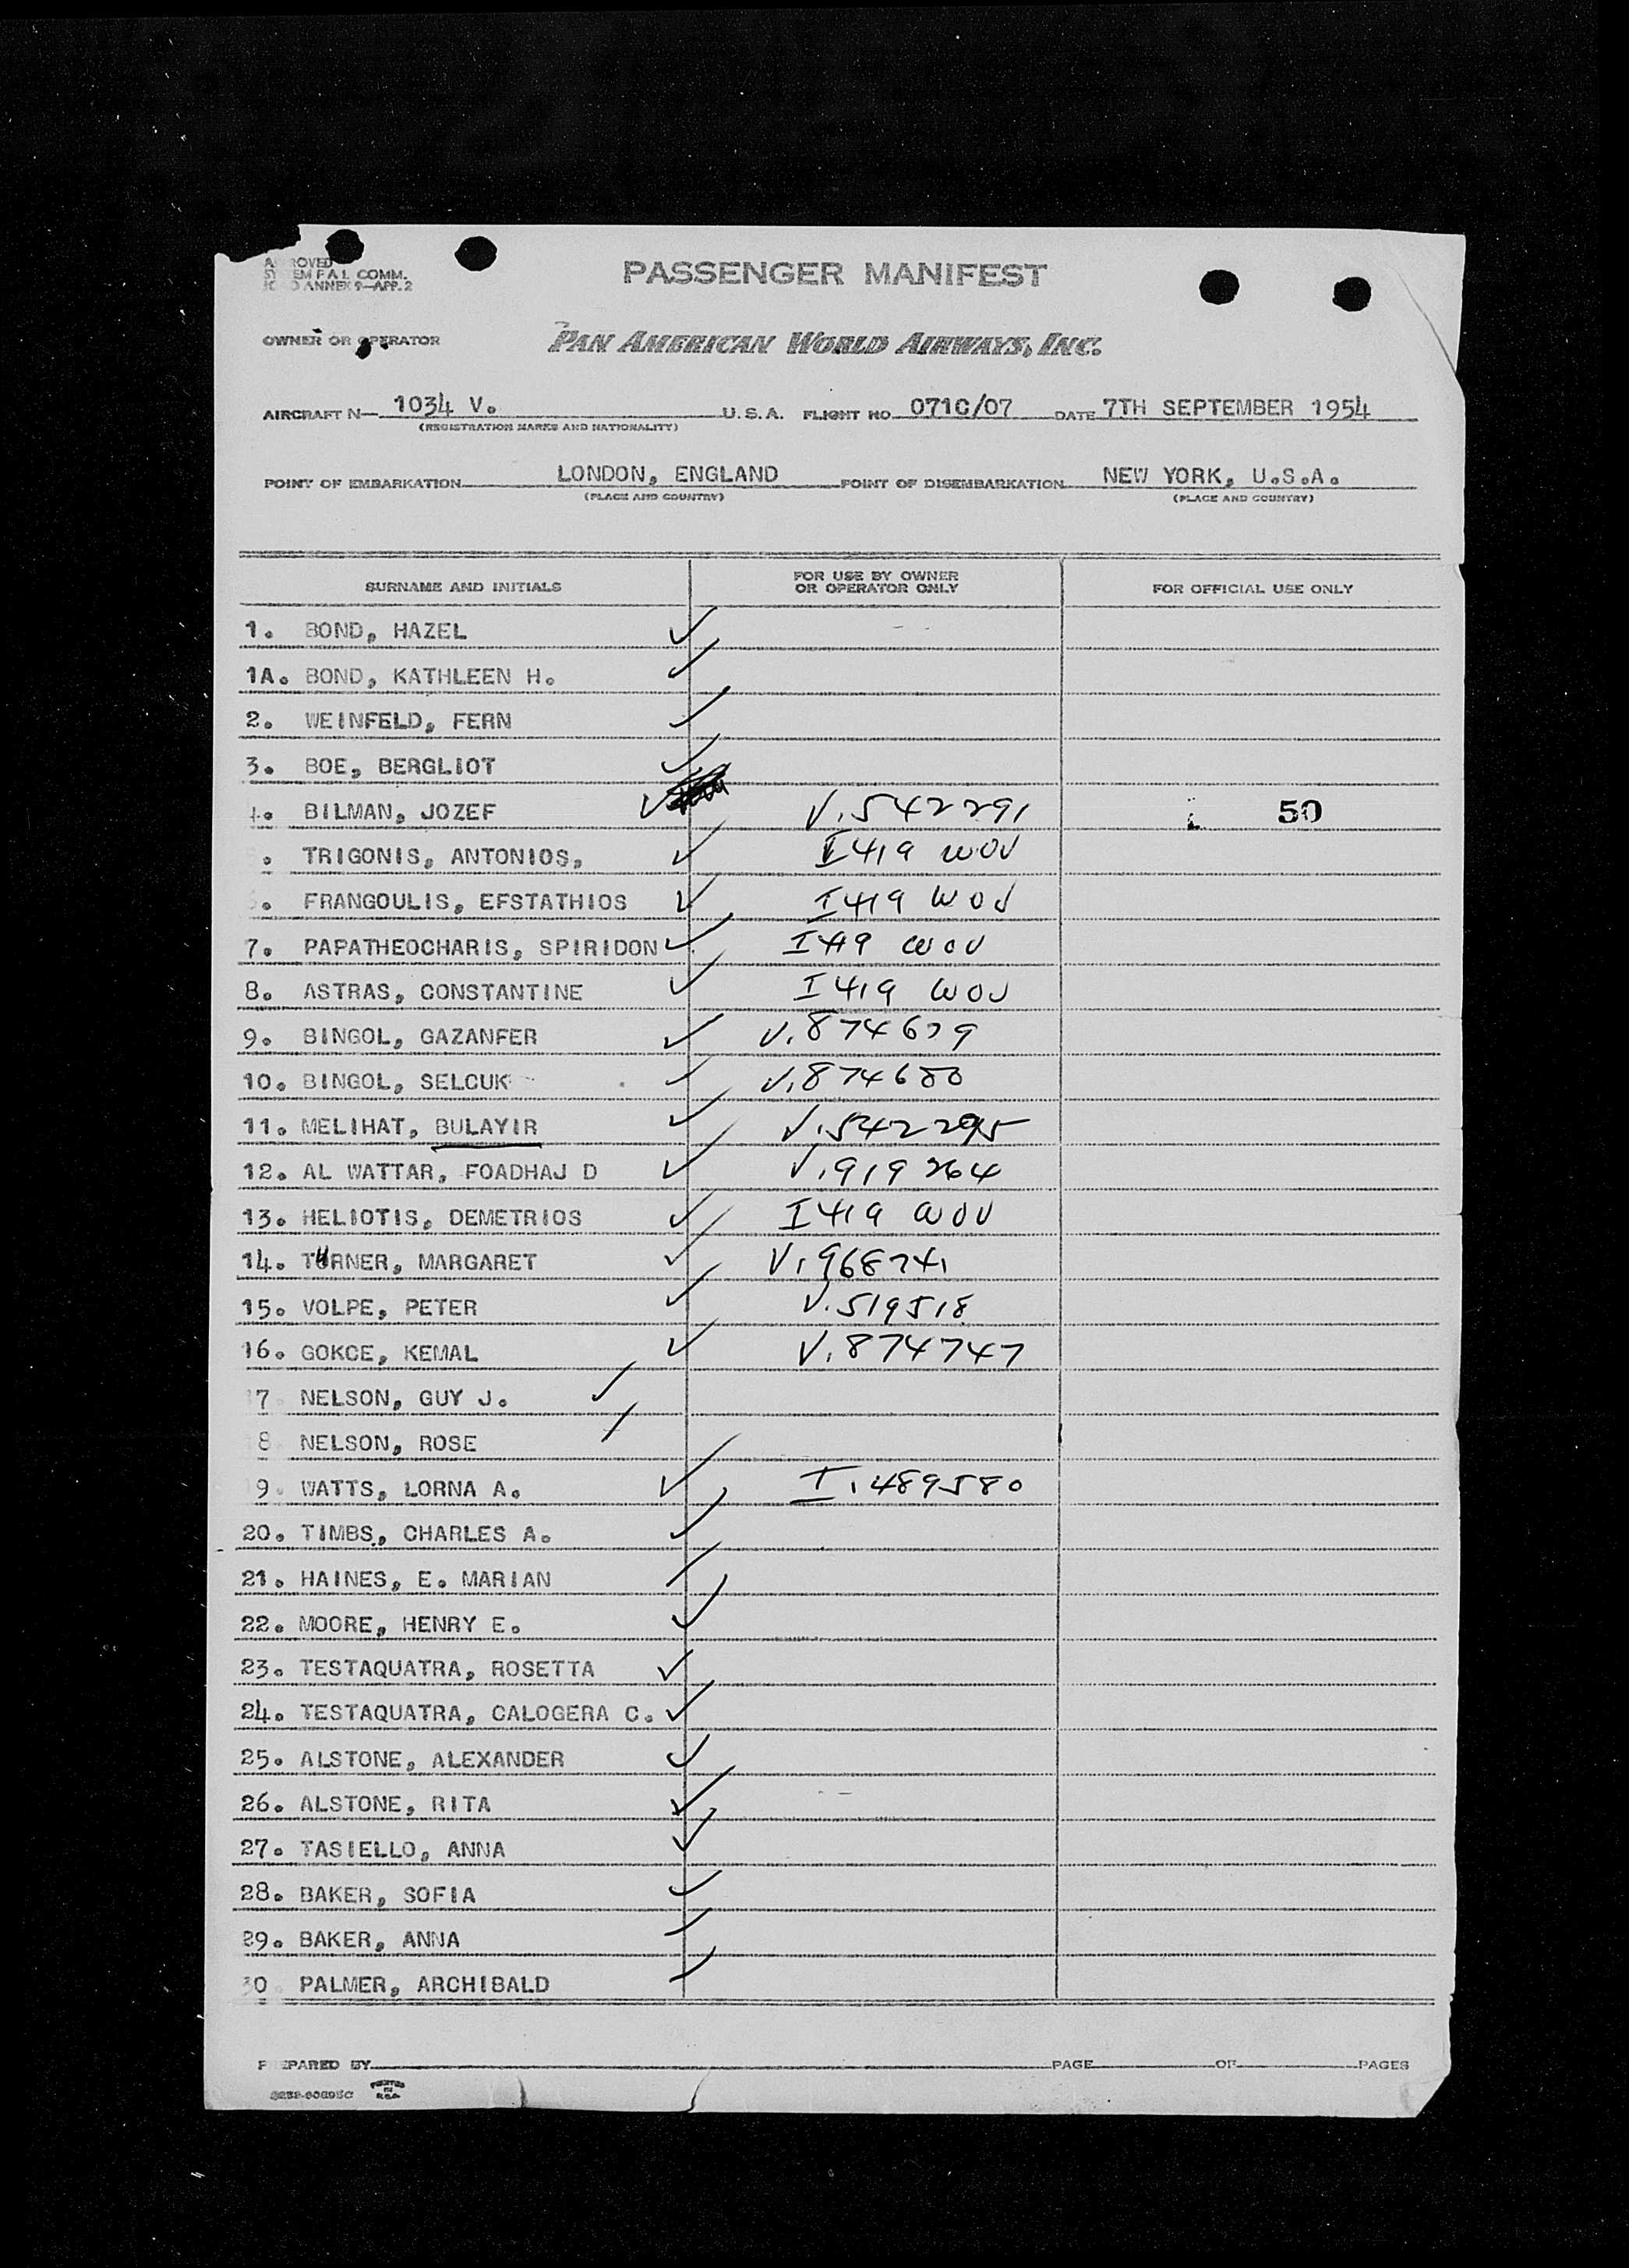 PASSENGER MANIFEST
SY EM F A L COMM.
ANNEX 9—APP. 2
OWNER OR OPERATOR PAN AMERICAN WORLD AIRWAYS, INC.
AIRCRAFT N— 1034 V. U.S.A. FLIGHT NO 071C/07 DATE 7TH SEPTEMBER 1954
(REGISTRATION MARKS AND NATIONALITY)
POINT OF EMBARKATION LONDON, ENGLAND POINT OF DISEMBARKATION NEW YORK, U.S.A.
(PLACE AND COUNTRY) (PLACE AND COUNTRY)
SURNAME AND INITIALS FOR USE BY OWNER OR OPERATOR ONLY FOR OFFICIAL USE ONLY
1. BOND, HAZEL
1A. BOND, KATHLEEN H.
2. WEINFELD, FERN
3. BOE, BERGLIOT
4. BILMAN, JOZEF V.542291 50
. TRIGONIS, ANTONIOS, I419 WOV
. FRANGOULIS, EFSTATHIOS I419 WOV
7. PAPATHEOCHARIS, SPIRIDON I419 WOV
8. ASTRAS, CONSTANTINE I419 WOV
9. BINGOL, GAZANFER V.874679
10. BINGOL, SELCUK V.874680
11. MELIHAT, BULAYIR V.542295
12. AL WATTAR, FOADHAJ D V.919264
13. HELIOTIS, DEMETRIOS I419 WOV
14. TURNER, MARGARET V.968741
15. VOLPE, PETER V.519518
16. GOKCE, KEMAL V.874747
17 NELSON, GUY J.
8 NELSON, ROSE
9. WATTS, LORNA A. I.489580
20. TIMBS, CHARLES A.
21. HAINES, E. MARIAN
22. MOORE, HENRY E.
23. TESTAQUATRA, ROSETTA
24. TESTAQUATRA, CALOGERA C.
25. ALSTONE, ALEXANDER
26. ALSTONE, RITA
27. TASIELLO, ANNA
28. BAKER, SOFIA
29. BAKER, ANNA
30 PALMER, ARCHIBALD
P EPARED BY PAGE OF PAGES
PRINTED IN U.S.A.